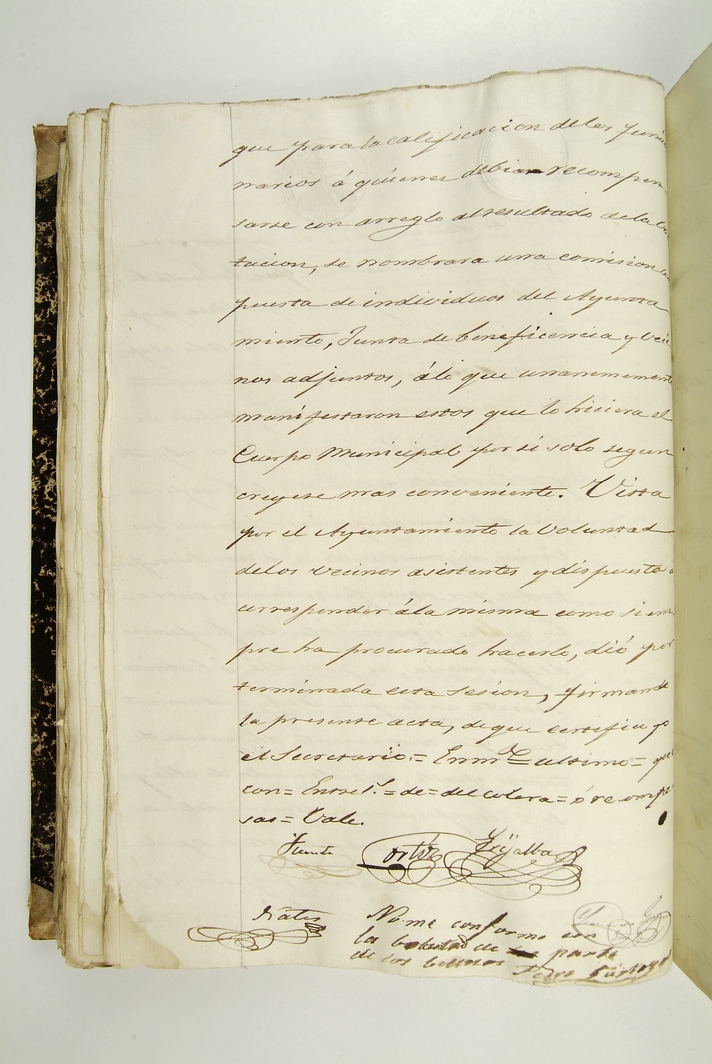 que para la calificacion de los funcio
narios á quienes debian recompen
sarse con arreglo al resultado de la vo
tacion, se nombrara una comision com
puesta de individuos del Ayunta
miento, Junta de beneficencia y veci
nos adjuntos, á lo que unanimemente
manifestaron estos que lo hiciera el
Cuerpo Municipal por si solo segun
creyese mas conveniente. Vista
por el Ayuntamiento la voluntad
de los vecinos asistentes y dispuesto a
corresponder á la misma como siem
pre ha procurado hacerlo, dió por
terminada esta sesion, firmando
la presente acta, de que certifico yo
el Secretario.= Enmdo = ultimo =
con = Entrel.s = de = del colera = ó recompen
sas = Vale.
Fuente Ortiz Grijalba
Matés
No me conformo con
la boluntad de parte
de los becinos